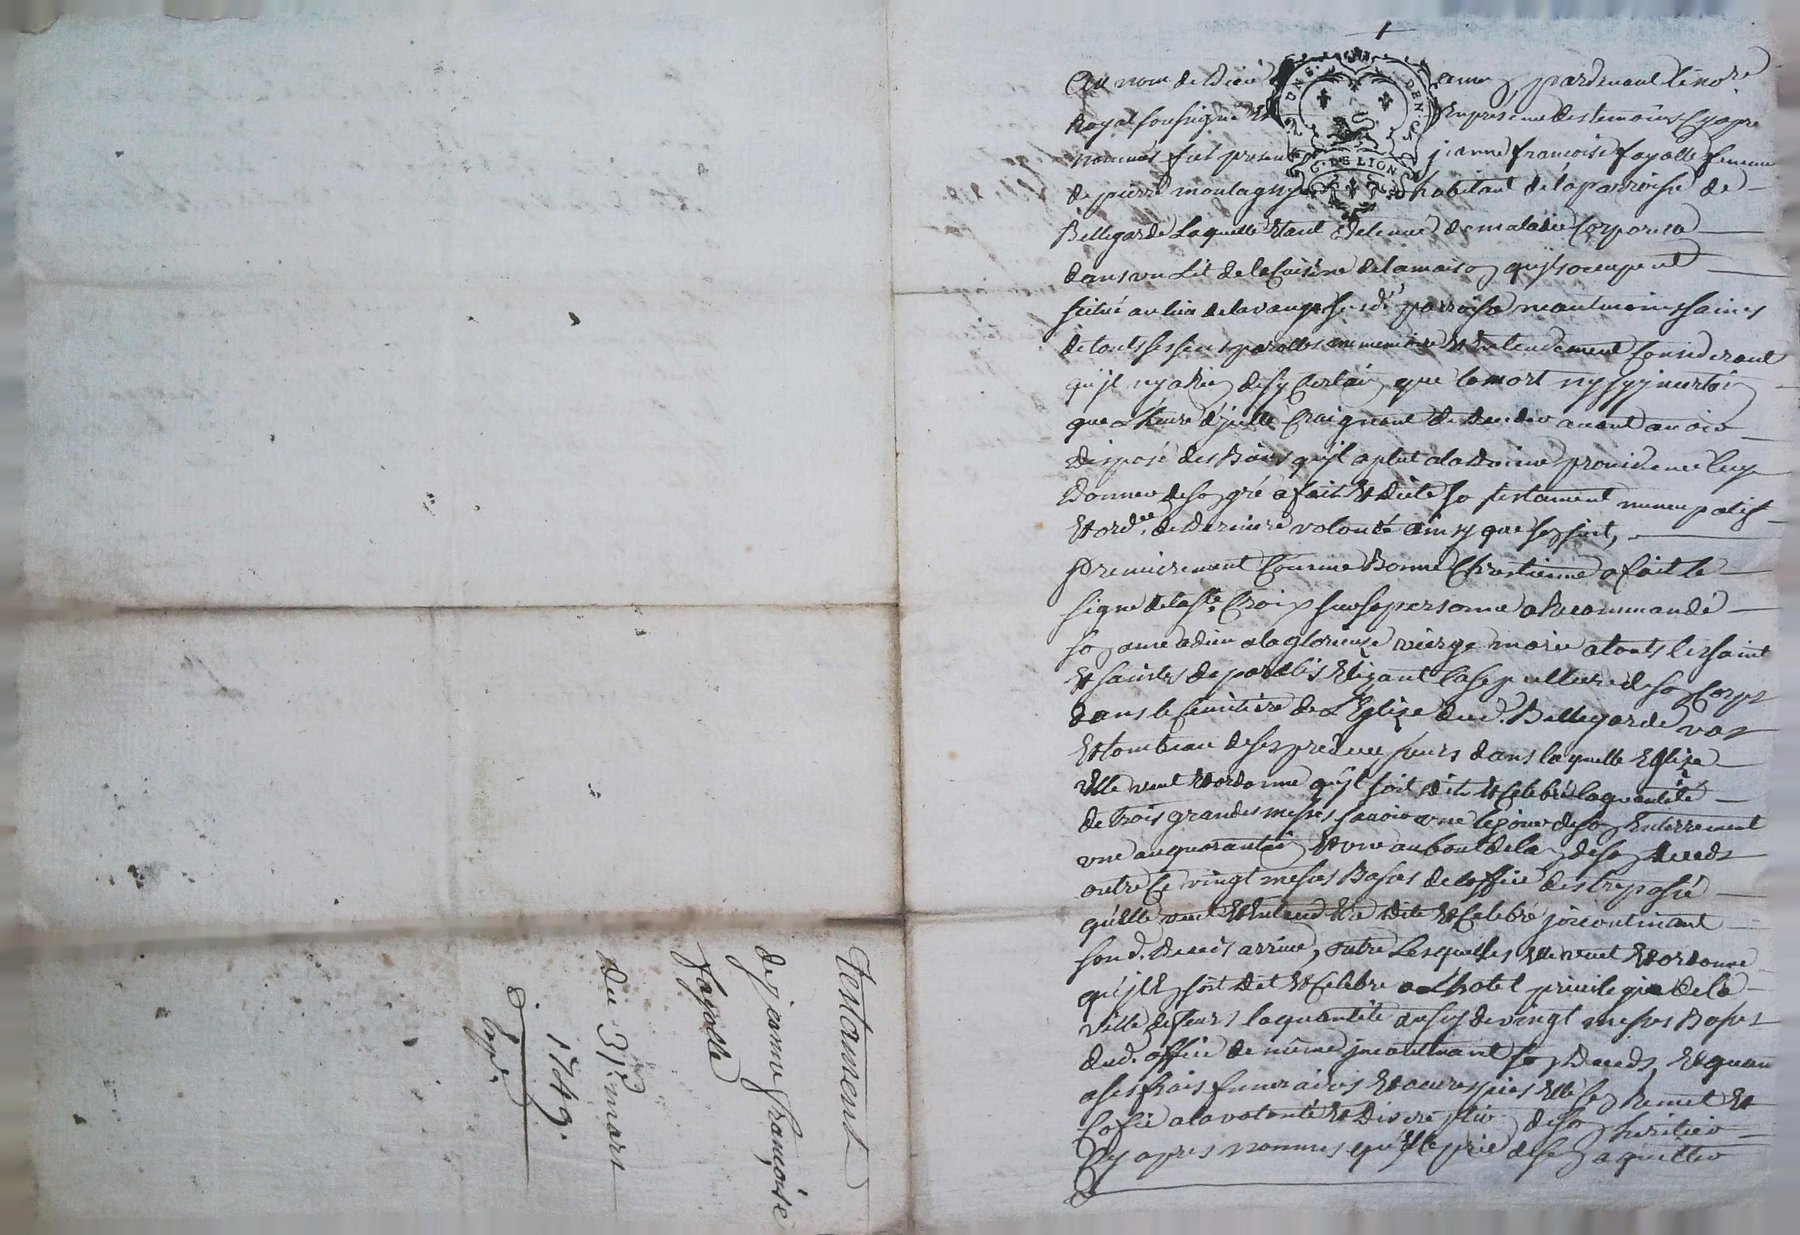 Testament
de jeanne françoise
fayolle
du 31e. mars
1749.
Exp.
Au nom de Dieu amen, pardevant le no.re
Royal soussigné et En presence des temoins Cy apre
nommés fut presente jeanne françoise fayolle femme
de pierre montagny habitant de la parroisse de
Bellegarde Laquelle Etant detenue de maladie Corporelle
dans un Lit de la Cuisine de la maison qu'jls occupent
scitué au lieu de susd. parroisse neantmoins saines
de touts ses sens parolles memoire Et Entendement Considerant
qu'jl ny a Rien de sy Certain que la mort ny sy jncertain
que Lheure d'jcelle Craignant de Deceder avant avoir
disposé des Biens qu'jl a plut a la Divine providence luy
Donner de son gré a fait Et dicté son testament nuncupatif
Et ord.ce de Derniere volonté ainsy que s'en suit,
Premierement Comme Bonne Chrestienne a fait le
signe de la Ste. Croix sur sa personne a Recommandé
son ame a dieu a la glorieuse vierge marie a touts les saint
Et saintes de paradis Elizant la sepulture de son Corps
dans le Cimitiere de L'Eglize dud. Bellegarde vas
Et tombeau de ses predecesseurs dans laquelle Eglize
Elle veut Et ordonne qu'jl soit dit Et Celebré la quantité
de trois grandes messes savoir une le jour de son Enterrement
une au quarantain Et une au bout de lan de son deceds
outre Ce vingt messes Basses de loffice des trepassé
qu'Elle veut Et Entend Etre dite Et Celebré jncontinant
son d. Deceds arrivé, outre Lesquelles Elle veut Et ordonne
qu'jl soit dit Et Celebré a Lhotel privilegié de la
ville de feurs la quantité aussy de vingt messes Basses
dud. office de même jncontinant son Deceds, Et quan
a ses frais funeraires Et oeuvres pies Elle s'en Remet Et
Confie a la volonté Et Discretion de son heritier
Cy apres nommés qu'Elle prie de s'en aquitter